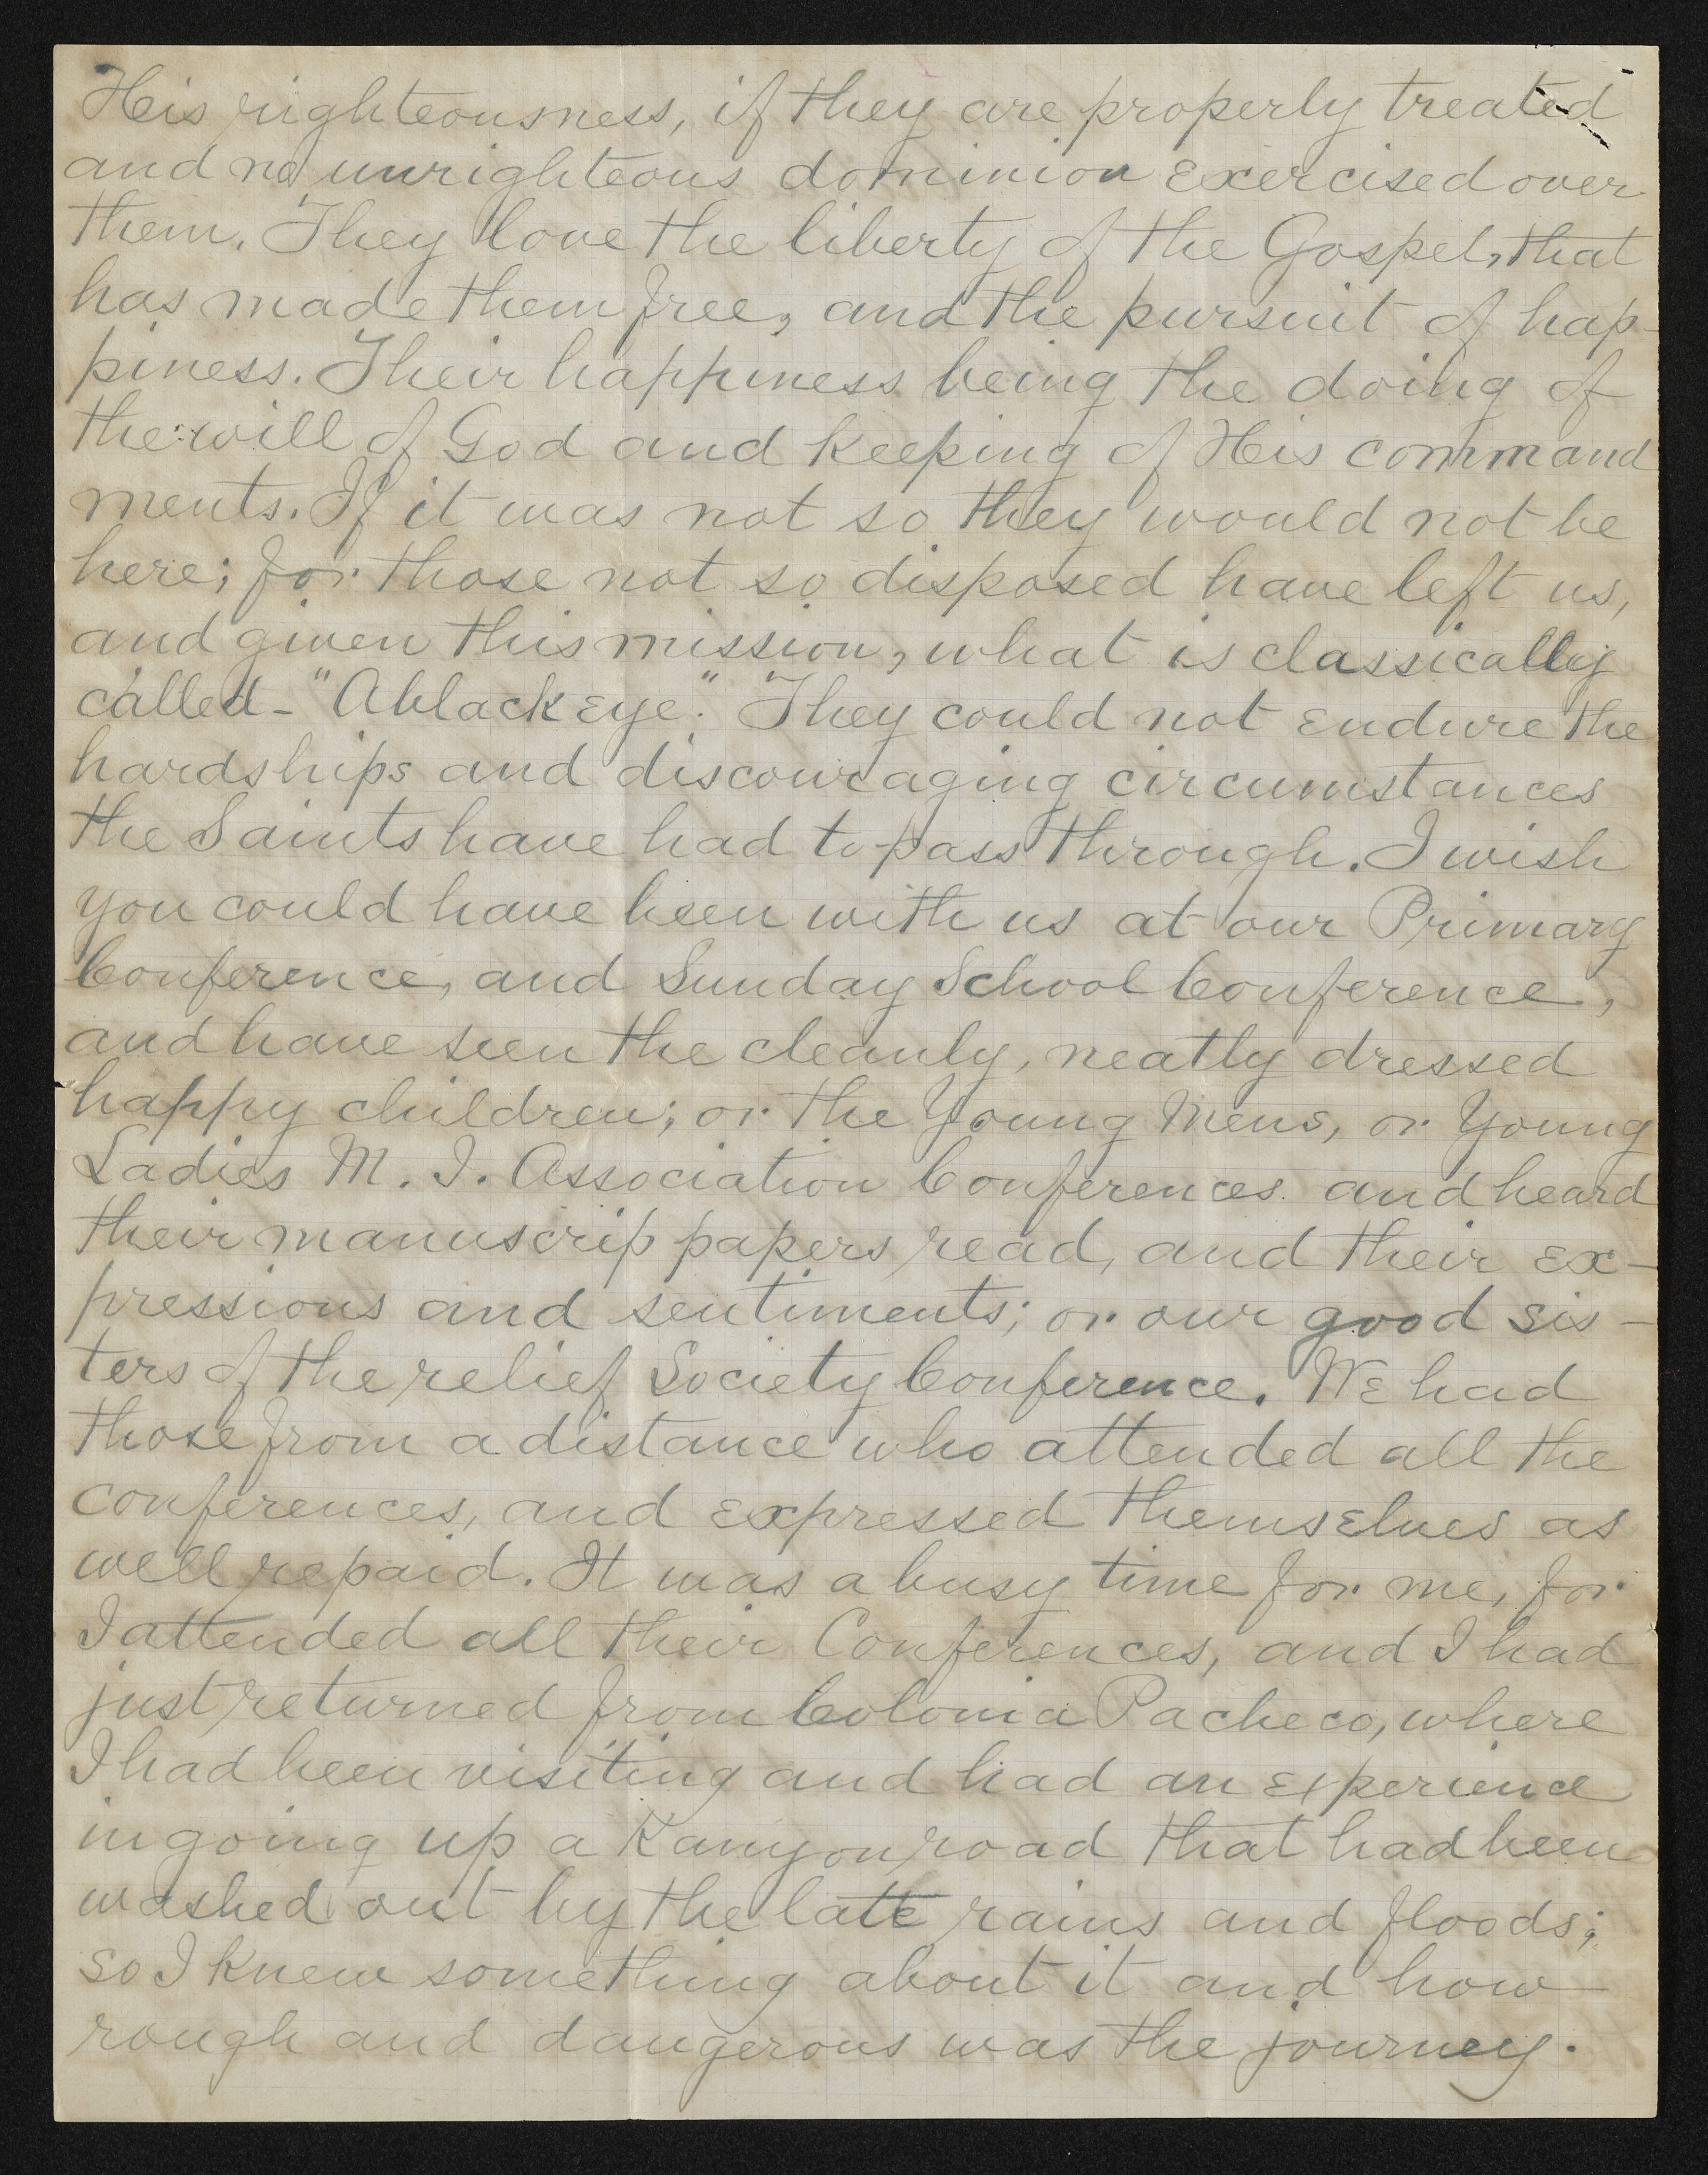 His righteousness, if they are properly treated
and no unrighteous dominion exercised over
them. They love the liberty of the Gospel, that
has made them free, and the pursuit of hap-
piness. Their happiness being the doing of
the will of God and keeping of His command
ments. If it was not so they would not be
here; for those not so disposed have left us,
and given this mission, what is classically
called - "A black eye". They could not endure the
hardships and discouraging circumstances
the Saints have had to pass through. I wish
you could have been with us at our Primary
Conference, and Sunday School Conference,
and have seen the cleanly, neatly dressed
happy children; or the Young Mens, or Young
Ladies M. I. Association Conferences. and heard
their manuscrip papers read, and their ex-
pressions and sentiments; or our good sis-
ters of the relief Society Conference. We had
those from a distance who attended all the
conferences, and expressed themselves as
well repaid. It was a busy time for me, for
I attended all their Conferences, and I had
just returned from Colonia Pacheco, where
I had been visiting and had an experience
in going up a Kanyon road that had been
washed out by the late rains and floods;
so I knew something about it and how
rough and dangerous was the journey.